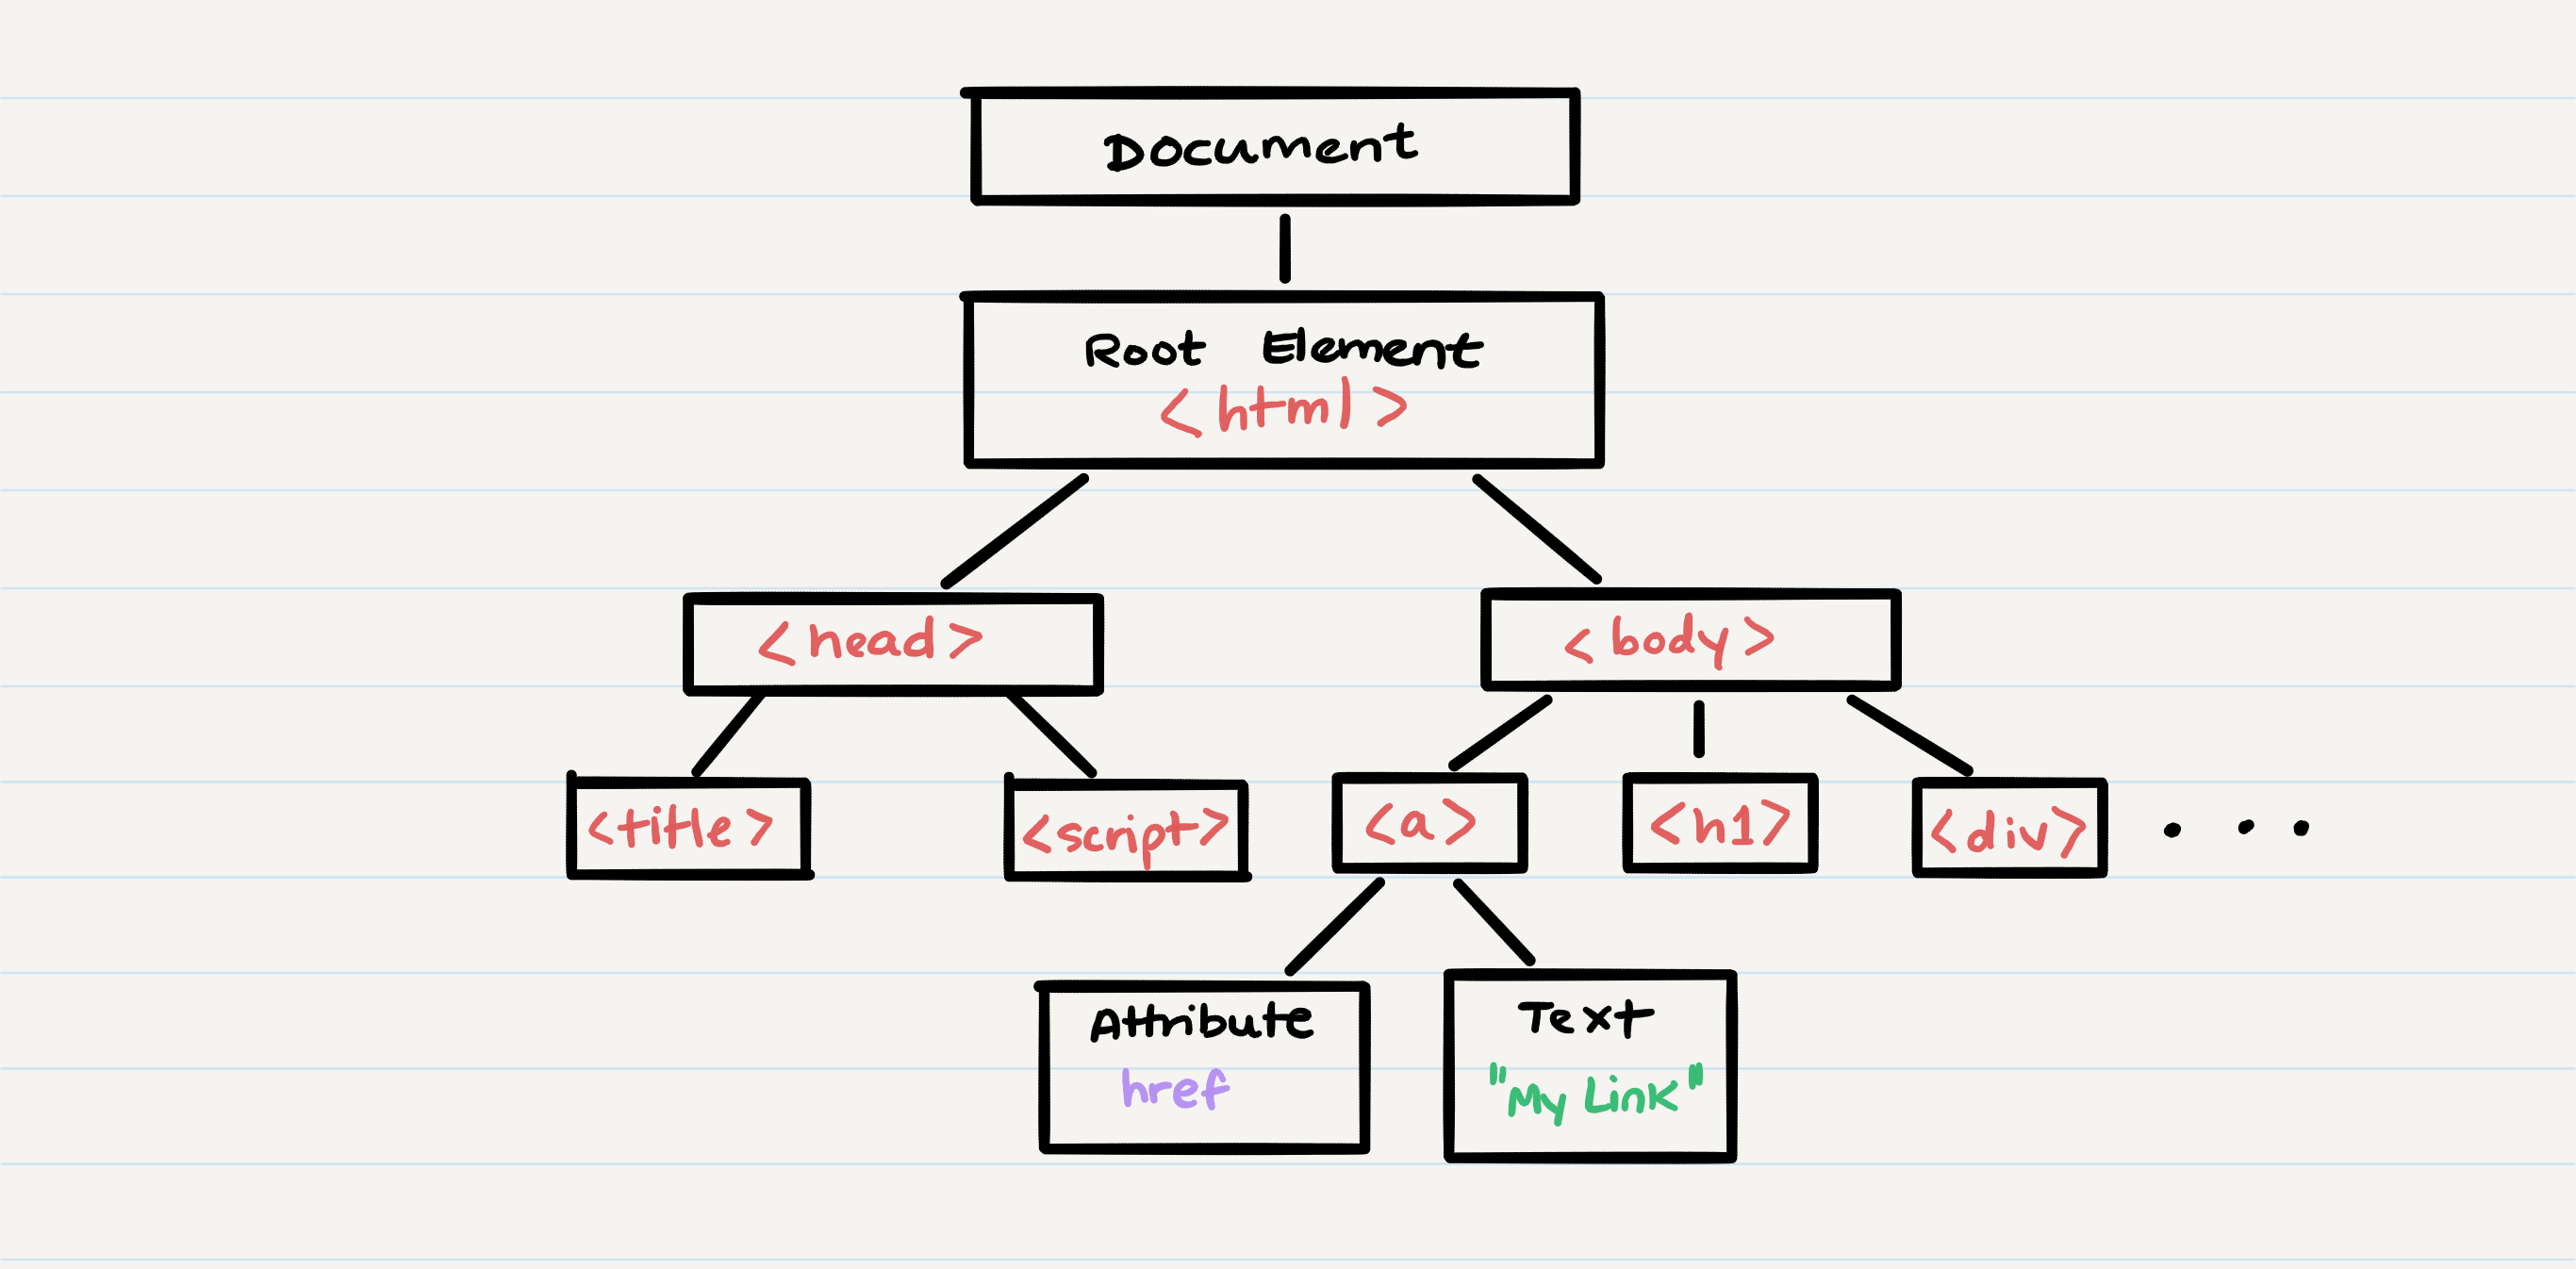 Document
Root Element
<html>
<head>
<body>
<title>
<script>
<a>
<h1>
<div>
...
Attribute
href
Text
"My Link"